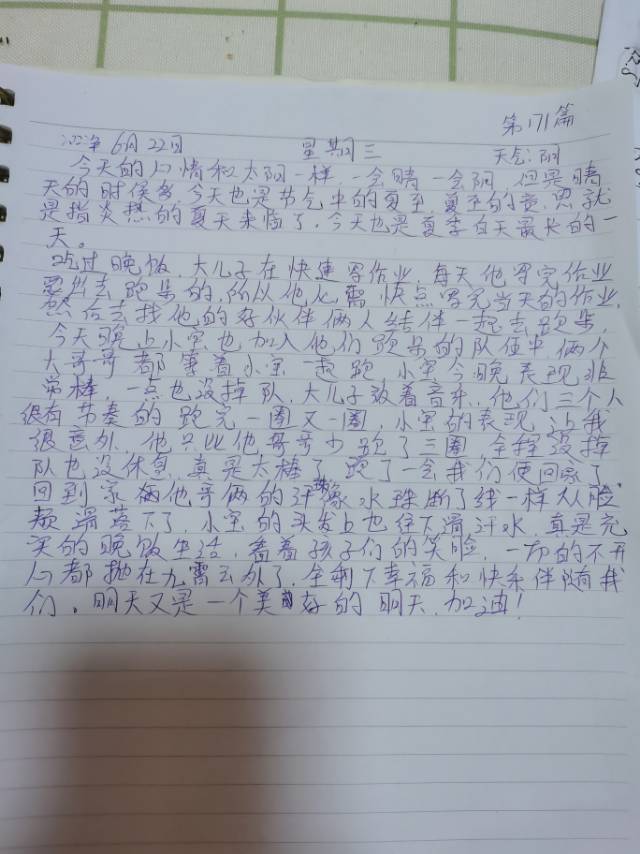 第171篇
2022年6月22日 星期三 天气:阴
今天的心情和太阳一样,一会晴一会阴,但是晴
天的时候多,今天也是节气中的夏至,夏至的意思就
是指炎热的夏天来临了,今天也是夏季白天最长的一
天。
吃过晚饭,大儿子在快速写作业,每天他写完作业
要出去跑步的,所以他必需快点写完当天的作业,
然后去找他的好伙伴俩人结伴一起去跑步,
今天晚上小宝也加入他们跑步的队伍中,俩个
大哥哥都带着小宝一起跑,小宝今晚表现非
常棒,一点也没掉队,大儿子放着音乐,他们三个人
很有节奏的跑完一圈又一圈,小宝的表现让我
很意外,他只比他哥哥少跑了三圈,全程没掉
队也没休息,真是太棒了,跑了一会我们便回家了,
回到家俩他哥俩的汗珠像水珠断了线一样从脸
颊滑落下了,小宝的头发上也往下滑汗水,真是充
实的晚饭生活,看着孩子们的笑脸,一切的不开
心都抛在九霄云外了,全剩下幸福和快乐伴随我
们。明天又是一个美好的明天,加油!